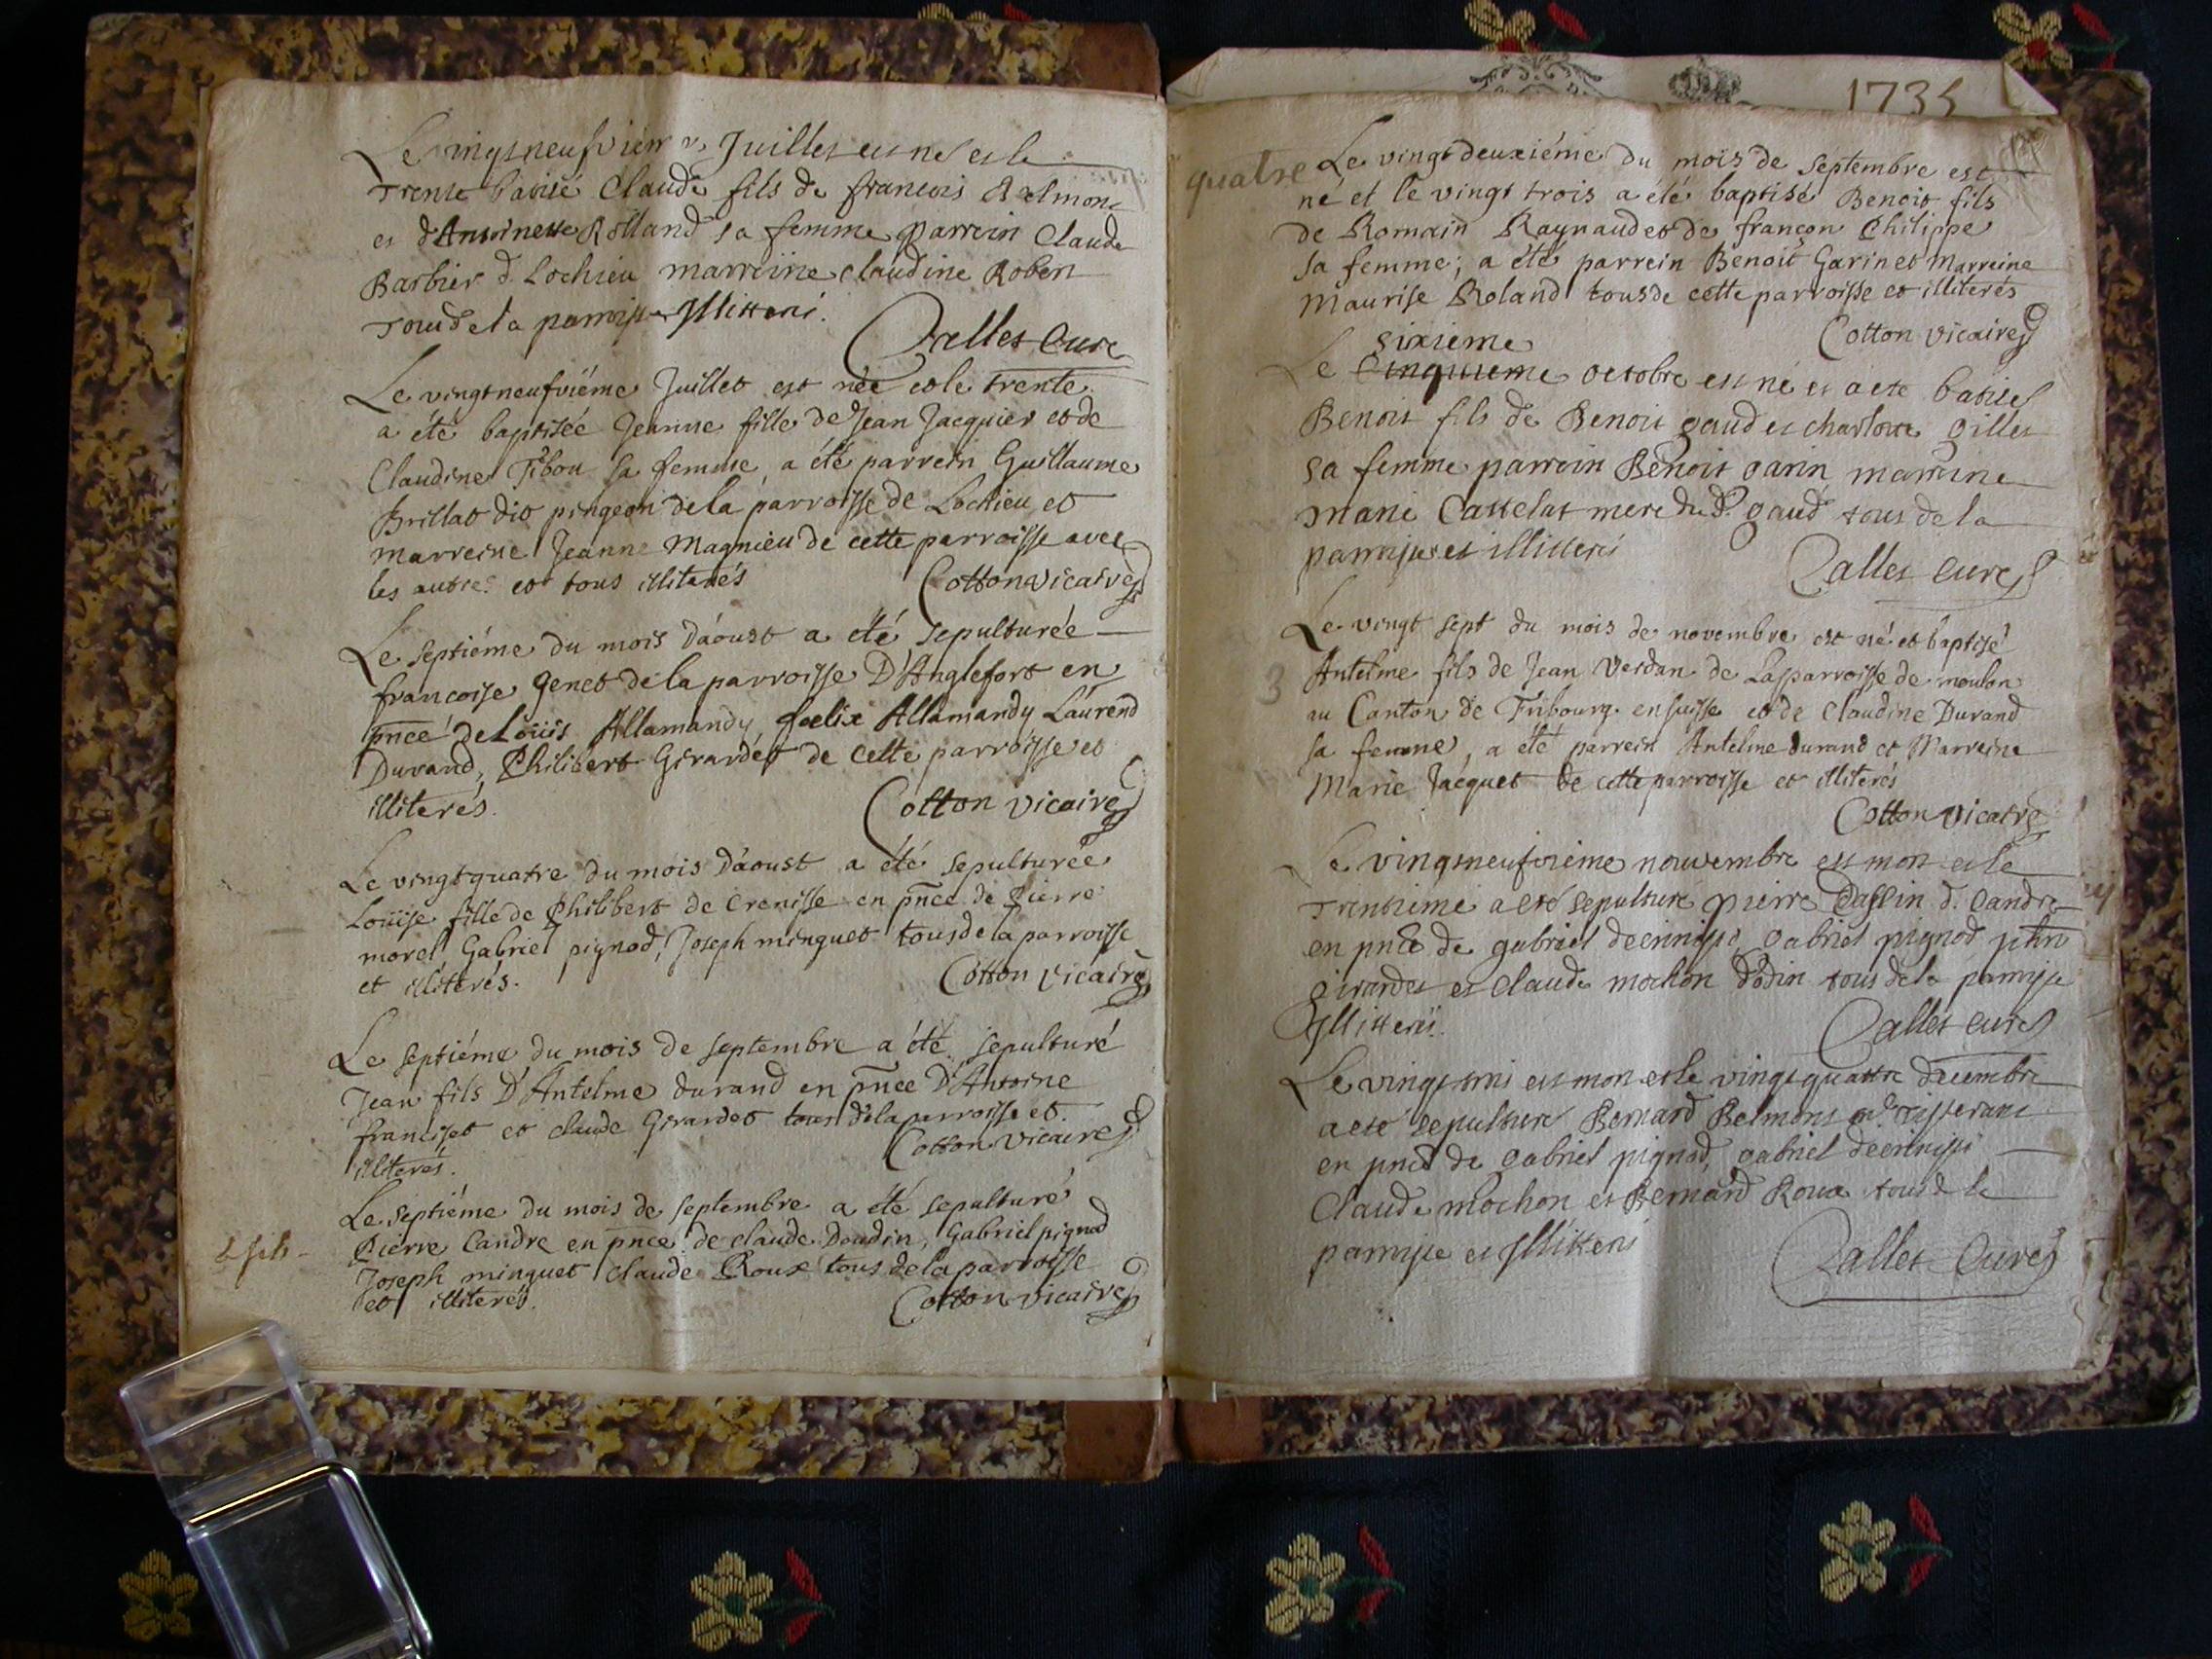 Le vingt neufviem Juillet est né et le
Trente batisé Claude fils de francois Belmont
et d'Antoinette Rolland sa femme parrein Claude
Barbier d. Lochieu marreine claudine Robert
Tous de la parroisse Illitteré.
Curé
Le vingt neufviéme Juillet est née et le trente
a été baptisée Jeanne fille de Jean Jacquier et de
Claudine Tibou sa femme, a été parrein Guillaume
Brillat dit pingeon de la parroisse de Lochieu et
marreine Jeanne Magnieu de cette parroisse avec
les autres et tous illiterés
Cotton vicaire
Le septiéme du mois d'áoust a été sepulturée
francoise Genet de la parroisse D'Anglefort en
pnce de Loüis Allamandy foelix Allamandy Laurend
Durand, Philibert Girardet de cette parroisse et
illiterés.
Cotton vicaire
Le vingt quatre du mois d'áoust a été sepulturée
Loüise fille de Philibert de Crenisse en pnce de Pierre
morel, Gabriel pignod, Joseph minguet tous de la parroisse
et illiterés.
Cotton vicaire
Le septiéme du mois de septembre a été sepulturé
Jean fils D'Antelme durand en pnce D'Antoine
franciset et claude Girardet tous de la parroisse et
illiterés.
Cotton vicaire
Le septiéme du mois de septembre a été sepulturé
Pierre Candre en pnce de claude Doudin, Gabriel pignod
Joseph minguet claude Roux tous de la parroisse
et illiterés.
Cotton vicaire
1735
quatre
Le vingt deuxiéme du mois de septembre est
né et le vingt trois a été baptisé Benoit fils
de Romain Raynaud et de françon Philippe
sa femme; a été parrein Benoit Garin et Marreine
Maurise Roland tous de cette parroisse et illiterés
Cotton vicaire
sixieme
Le Cinquieme octobre est né et a ete batisé
Benoit fils de Benoit gaud et charlotte gillet
sa femme parrein Benoit garin marreine
marie Cattelat mere dud. gaud tous de la
parroisse et illitterés
Curé
Le vingt sept du mois de novembre est né et baptisé
3
Antelme fils de Jean Verdan de La parroisse de moulon
au Canton de Fribourg en suisse et de Claudine Durand
sa femme, a été parrein Antelme durand et Marreine
Marie Jacquet de cette parroisse et illiterés
Cotton vicaire
Le vingt neufvieme nouvembre est mort et le
Trentieme a eté sepulturé pierre d. Candre
en pnce de gabriel decrenisse gabriel pignod
girardet et Claude mochon dodin tous de la parroisse
Illitterés.
Curé
Le vingt trois est mort et le vingt quattre decembre
a eté sepulturé Bernard Belmont tisserant
en pnce de gabriel pignod, gabriel decrenisse
Claude mochon et Bernard Roux tous de la
parroisse et Illitterés
Curé